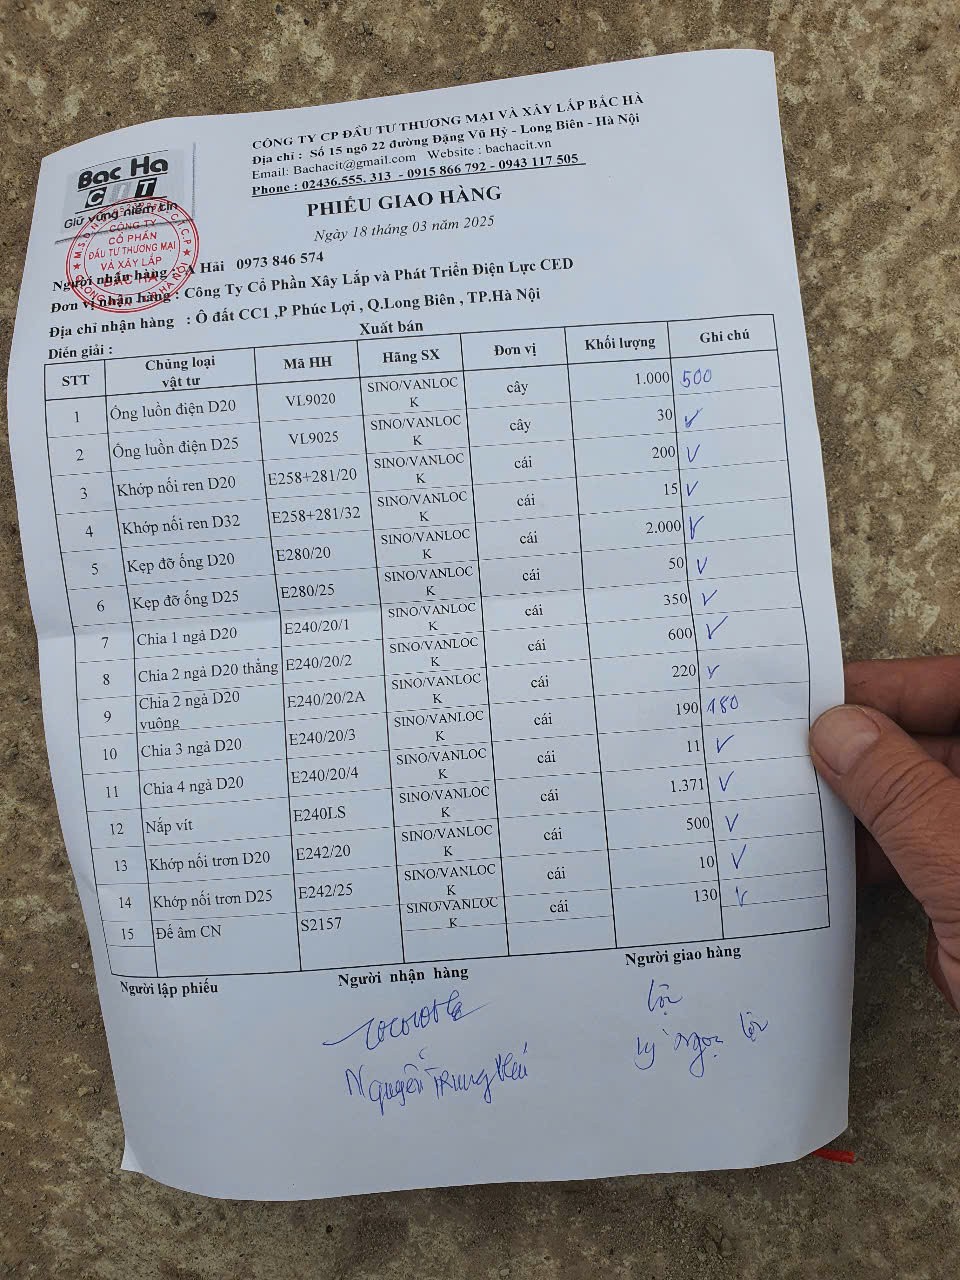 Bac Ha
CIT
Giữ vững niềm tin
CÔNG TY
CỔ PHẦN
ĐẦU TƯ THƯƠNG MẠI
VÀ XÂY LẮP
BẮC HÀ
CÔNG TY CP ĐẦU TƯ THƯƠNG MẠI VÀ XÂY LẮP BẮC HÀ
Địa chỉ : Số 15 ngõ 22 đường Đặng Vũ Hỷ - Long Biên - Hà Nội
Email: Bachacit@gmail.com Website : bachacit.vn
Phone : 02436.555. 313 - 0915 866 792 - 0943 117 505
PHIẾU GIAO HÀNG
Ngày 18 tháng 03 năm 2025
Người nhận hàng : A Hải 0973 846 574
Đơn vị nhận hàng : Công Ty Cổ Phần Xây Lắp và Phát Triển Điện Lực CED
Địa chỉ nhận hàng : Ô đất CC1 ,P Phúc Lợi , Q.Long Biên , TP.Hà Nội
Diễn giải : Xuất bán
STT Chủng loại vật tư Mã HH Hãng SX Đơn vị Khối lượng Ghi chú
1 Ống luồn điện D20 VL9020 SINO/VANLOCK cây 1.000 500
2 Ống luồn điện D25 VL9025 SINO/VANLOCK cây 30 ✓
3 Khớp nối ren D20 E258+281/20 SINO/VANLOCK cái 200 ✓
4 Khớp nối ren D32 E258+281/32 SINO/VANLOCK cái 15 ✓
5 Kẹp đỡ ống D20 E280/20 SINO/VANLOCK cái 2.000 ✓
6 Kẹp đỡ ống D25 E280/25 SINO/VANLOCK cái 50 ✓
7 Chia 1 ngả D20 E240/20/1 SINO/VANLOCK cái 350 ✓
8 Chia 2 ngả D20 thẳng E240/20/2 SINO/VANLOCK cái 600 ✓
9 Chia 2 ngả D20 vuông E240/20/2A SINO/VANLOCK cái 220 ✓
10 Chia 3 ngả D20 E240/20/3 SINO/VANLOCK cái 190 180
11 Chia 4 ngả D20 E240/20/4 SINO/VANLOCK cái 11 ✓
12 Nắp vít E240LS SINO/VANLOCK cái 1.371 ✓
13 Khớp nối trơn D20 E242/20 SINO/VANLOCK cái 500 ✓
14 Khớp nối trơn D25 E242/25 SINO/VANLOCK cái 10 ✓
15 Đế âm CN S2157 SINO/VANLOCK cái 130 ✓
Người lập phiếu Người nhận hàng Người giao hàng
Lộc
Nguyễn Trung
Lý Ngọc Lộc